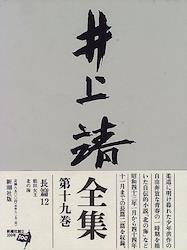 井上靖
全集
第十九巻
長篇12
額田女王
北の海
新潮社版
柔道に明け暮れた少年
自由奔放な青春の一時期を描
いた自伝的小説「北の海」など
昭和四十三年一月から四十四年
十一月までの長篇二篇を収録。